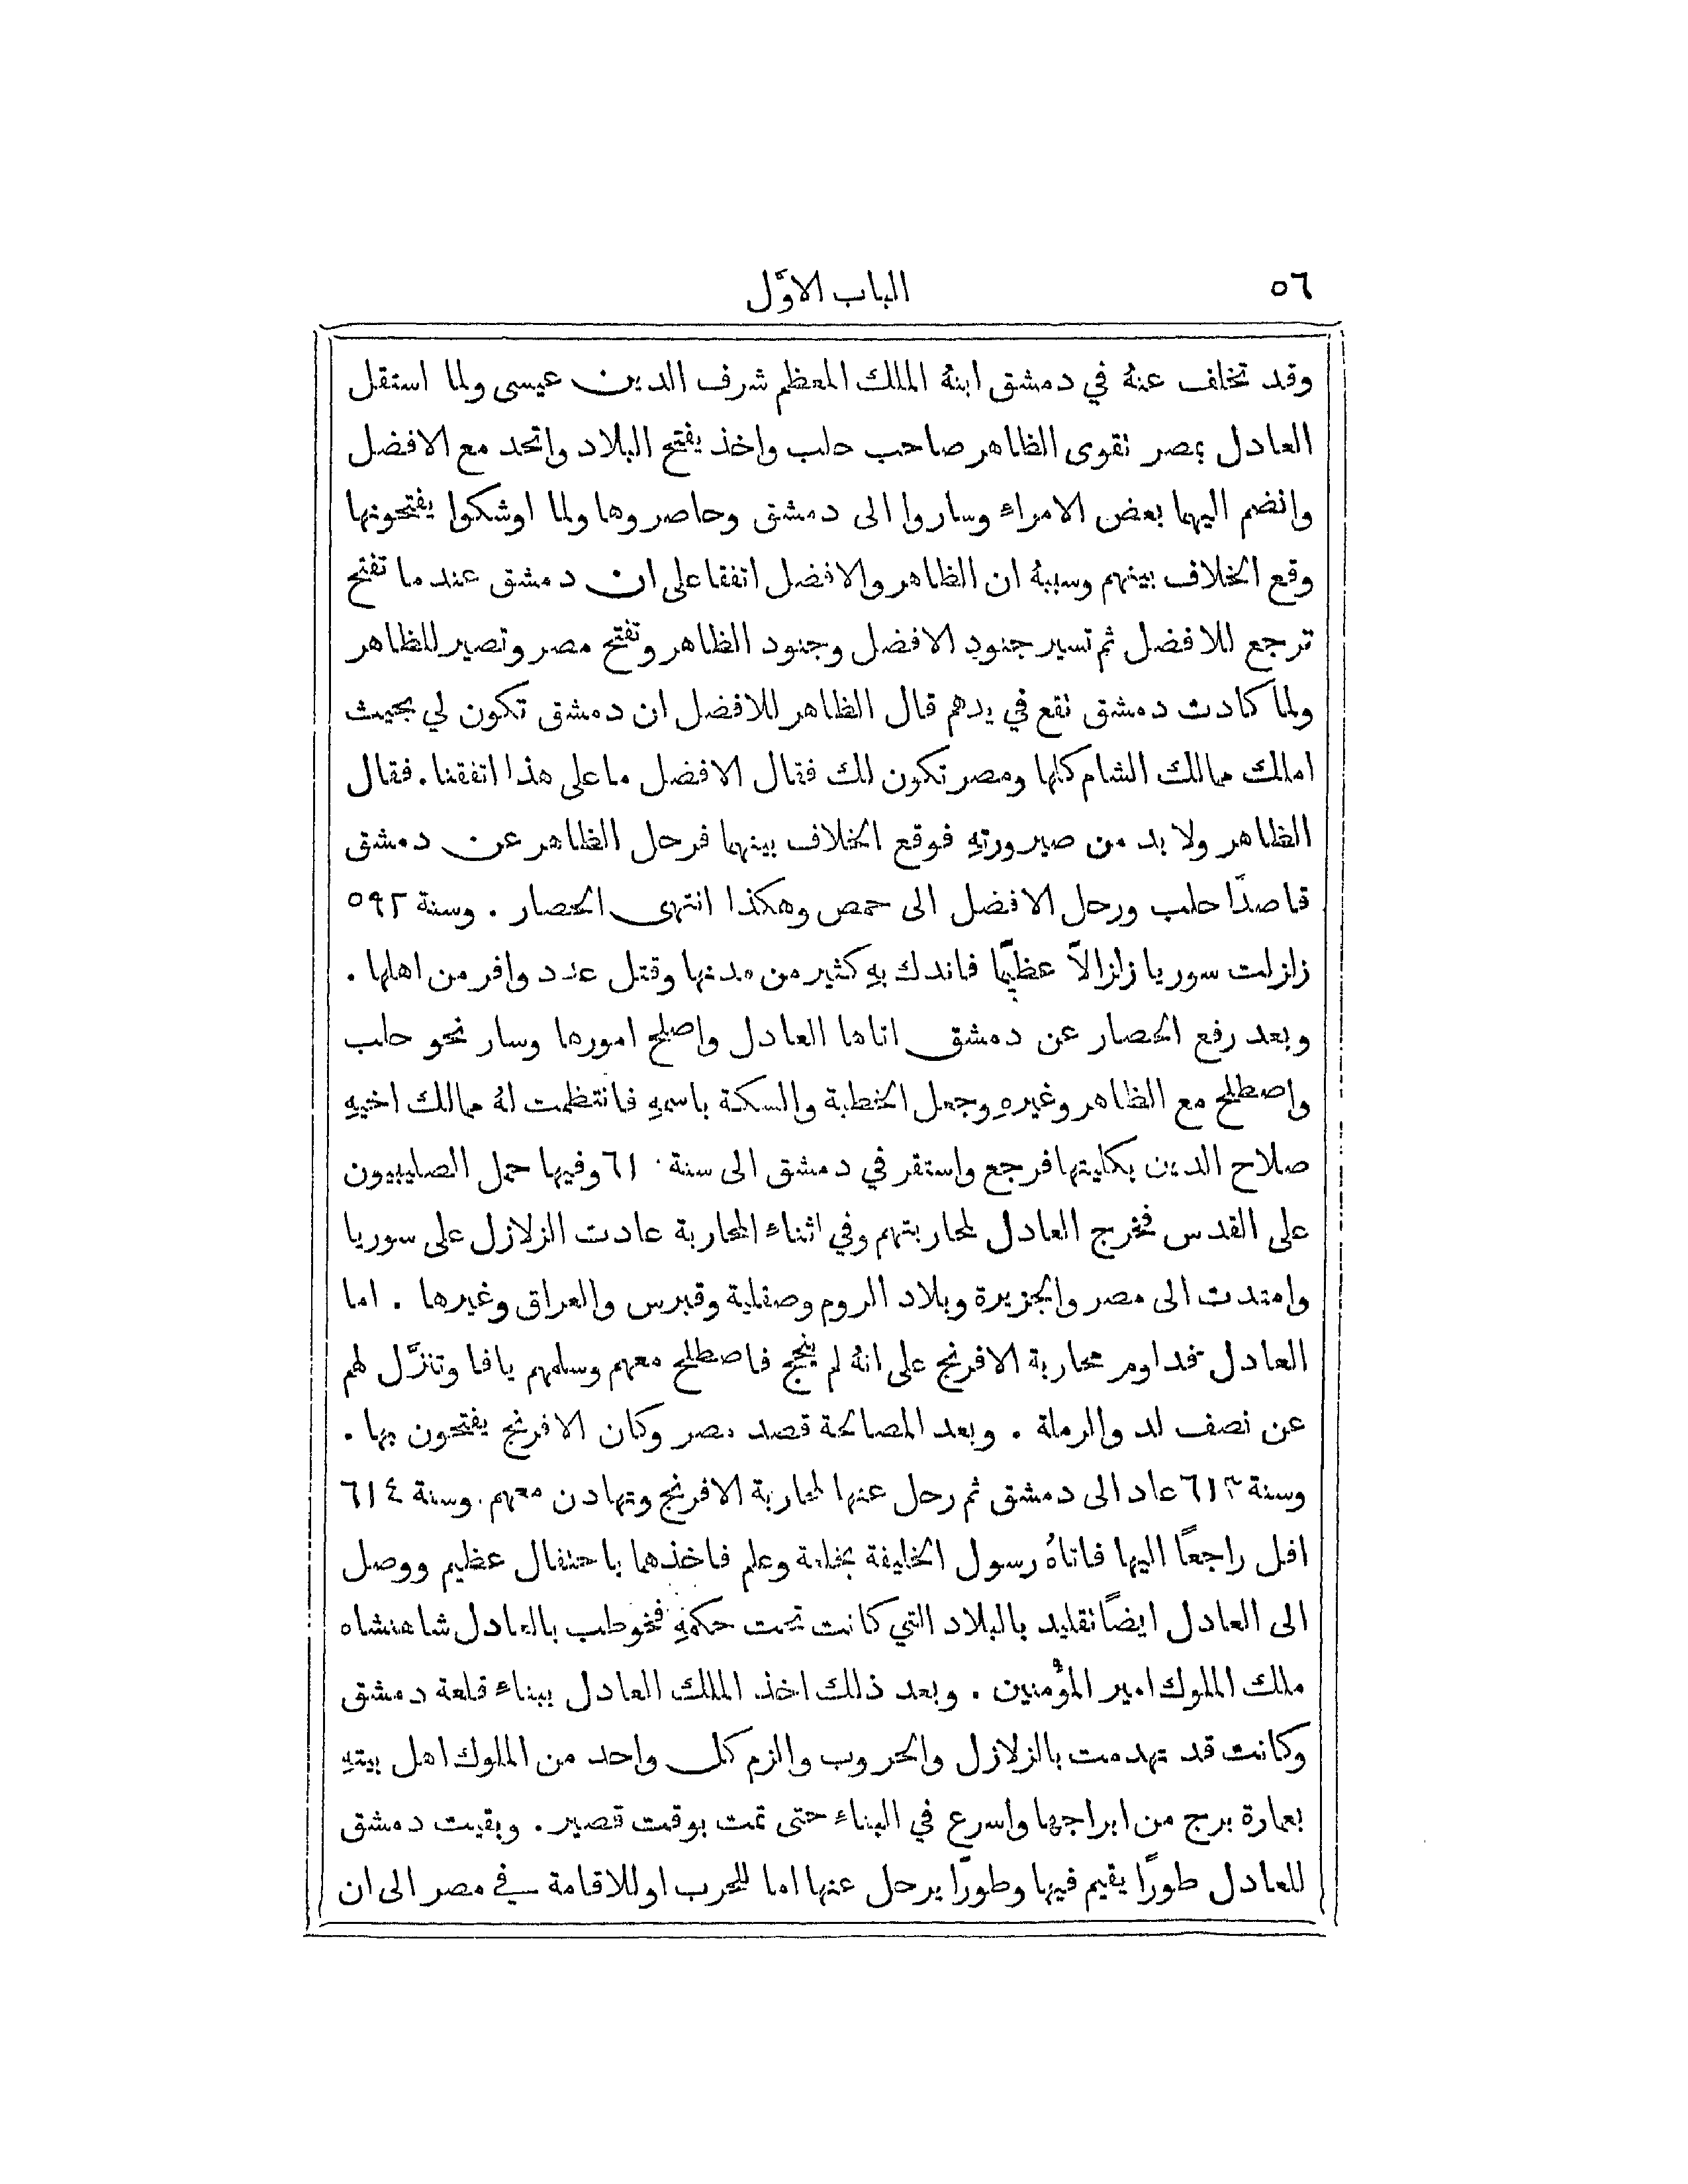 ٥٦
الباب الاوّل
وقد تخلف عنهُ في دمشق ابنهُ الملك المعظم شرف الدين عيسى ولما استقل
العادل بمصر تقوى الظاهر صاحب حلب واخذ يفتح البلاد واتحد مع الافضل
وانضم اليهما بعض الامراء وساروا الى دمشق وحاصروها ولما اوشكوا يفتحونها
وقع الخلاف بينهم وسببهُ ان الظاهر والافضل اتفقا على ان دمشق عند ما تفتح
ترجع للافضل ثم تسير جنود الافضل وجنود الظاهر وتفتح مصر وتصير للظاهر
ولما كادت دمشق تقع في يدهم قال الظاهر للافضل ان دمشق تكون لي بحيث
املك ممالك الشام كلها ومصر تكون لك فقال الافضل ما على هذا اتفقنا . فقال
الظاهر ولا بد من صيرورتهِ فوقع الخلاف بينهما فرحل الظاهر عن دمشق
قاصدًا حلب ورحل الافضل الى حمص وهكذا انتهى الحصار . وسنة ٥٩٢
زلزلت سوريا زلزالاً عظيمًا فاندك بهِ كثير من مدنها وقتل عدد وافر من اهلها .
وبعد رفع الحصار عن دمشق اتاها العادل واصلح امورها وسار نحو حلب
واصطلح مع الظاهر وغيرهِ وجعل الخطبة والسكة باسمهِ فانتظمت لهُ ممالك اخيهِ
صلاح الدين بكليتها فرجع واستقر في دمشق الى سنة ٦١٠ وفيها حمل الصليبيون
على القدس فخرج العادل لمحاربتهم وفي اثناء المحاربة عادت الزلازل على سوريا
وامتدت الى مصر والجزيرة وبلاد الروم وصقلية وقبرس والعراق وغيرها . اما
العادل فداوم محاربة الافرنج على انهُ لم ينجح فاصطلح معهم وسلمهم يافا وتنزَّل لهم
عن نصف لد والرملة . وبعد المصالحة قصد مصر وكان الافرنج يفتحون بها .
وسنة ٦١٣ عاد الى دمشق ثم رحل عنها لمحاربة الافرنج وتهادن معهم . وسنة ٦١٤
افل راجعًا اليها فاتاهُ رسول الخليفة بخلعة وعلم فاخذهما باحتفال عظيم ووصل
الى العادل ايضًا تقليد بالبلاد التي كانت تحت حكمهِ فخوطب بالعادل شاهنشاه
ملك الملوك امير المؤمنين . وبعد ذلك اخذ الملك العادل ببناء قلعة دمشق
وكانت قد تهدمت بالزلازل والحروب والزم كل واحد من الملوك اهل بيتهِ
بعمارة برج من ابراجها واسرع في البناء حتى تمت بوقت قصير . وبقيت دمشق
للعادل طورًا يقيم فيها وطورًا يرحل عنها اما للحرب او للاقامة في مصر الى ان